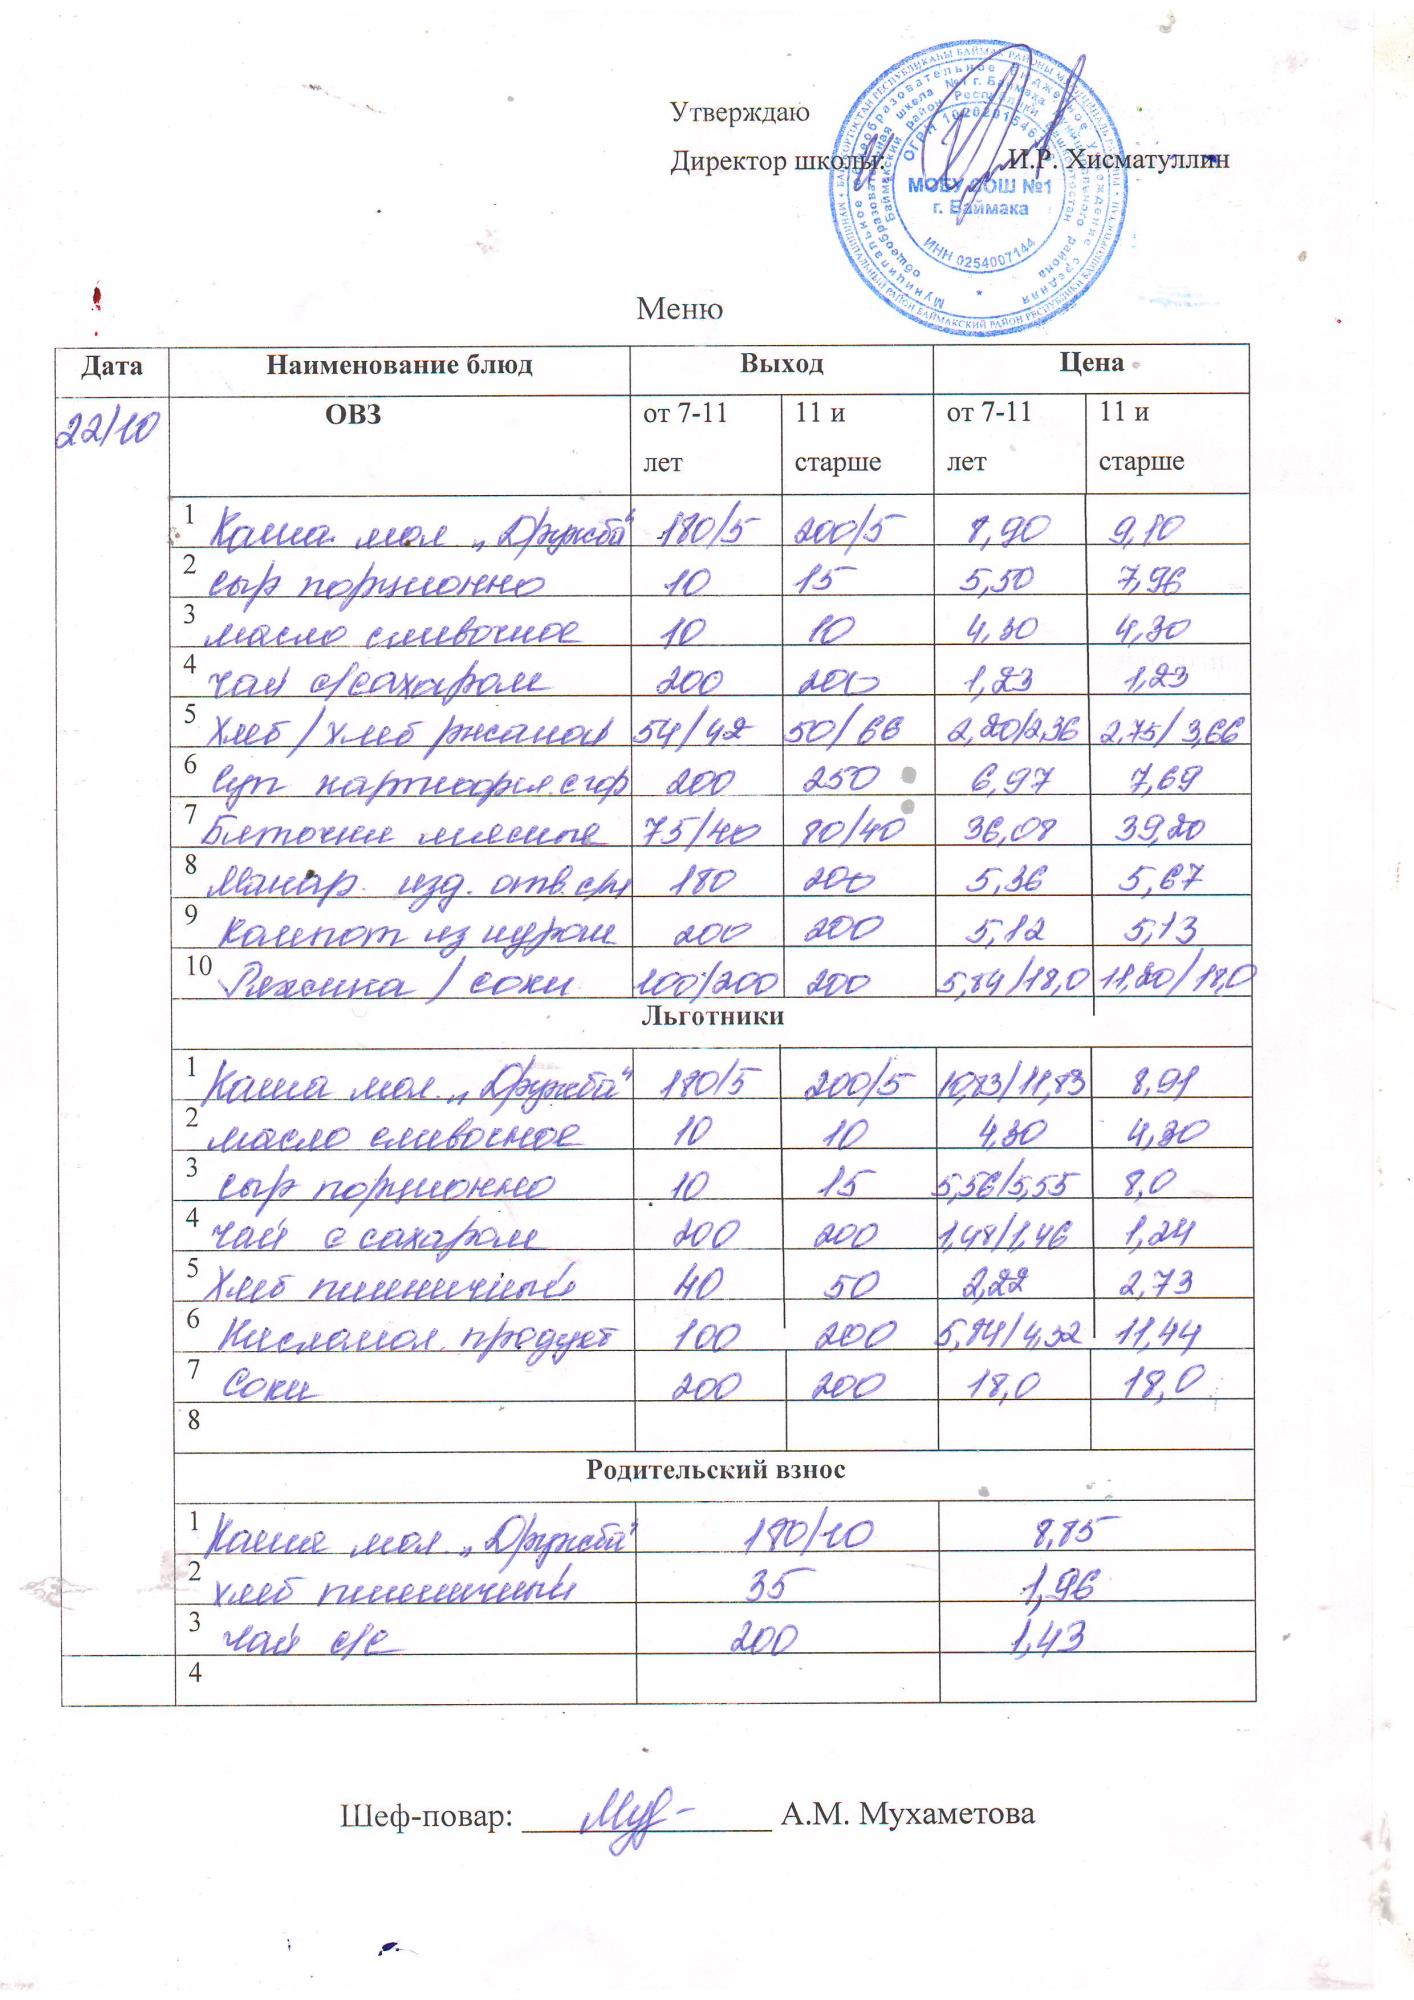 Утверждаю
Директор школы: И.Р. Хисматуллин
МОБУ СОШ №1
г. Баймака
ИНН 0254007144
Меню
Дата Наименование блюд Выход Цена
22/10 ОВЗ от 7-11 лет 11 и старше от 7-11 лет 11 и старше
1 Каша мол „Дружба“ 180/5 200/5 8,90 9,10
2 сыр порционно 10 15 5,50 7,96
3 масло сливочное 10 10 4,30 4,30
4 чай с/сахаром 200 200 1,23 1,23
5 Хлеб / хлеб ржаной 54/42 50/66 2,20/2,36 2,75/3,66
6 Суп картофел. с гор 200 250 6,97 7,69
7 Биточки мясные 75/40 80/40 36,08 39,20
8 Макар. изд. отв. с/м 180 200 5,36 5,67
9 Компот из кураги 200 200 5,12 5,13
10 Ряженка / соки 100/200 200 5,84/18,0 11,20/18,0
Льготники
1 Каша мол. „Дружба“ 180/5 200/5 10,83/11,83 8,91
2 масло сливочное 10 10 4,30 4,30
3 сыр порционно 10 15 5,56/5,55 8,0
4 чай с сахаром 200 200 1,48/1,46 1,24
5 Хлеб пшеничный 40 50 2,22 2,73
6 Кисломол. продукт 100 200 5,84/4,32 11,44
7 Соки 200 200 18,0 18,0
8
Родительский взнос
1 Каша мол. „Дружба“ 180/10 8,85
2 хлеб пшеничный 35 1,96
3 чай с/с 200 1,43
4
Шеф-повар: А.М. Мухаметова